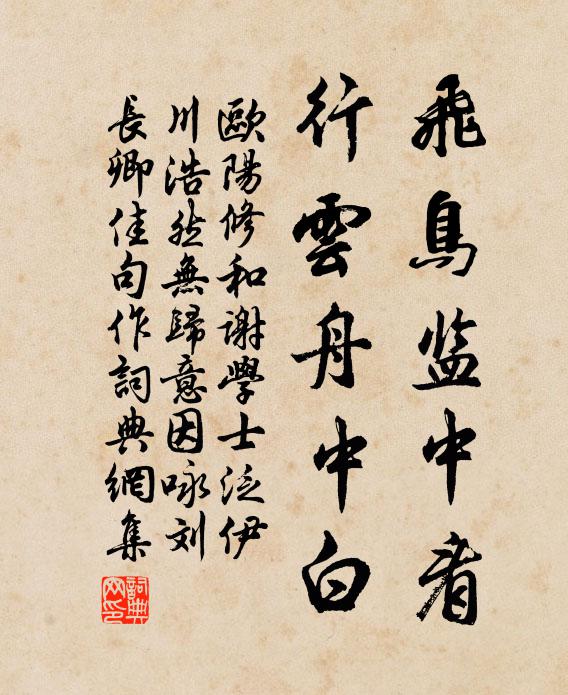 飛鳥监中看
行雲舟中白
歐陽修和謝學士泛伊
川浩然無歸意因咏刘
長卿佳句作詞典網集
詞典